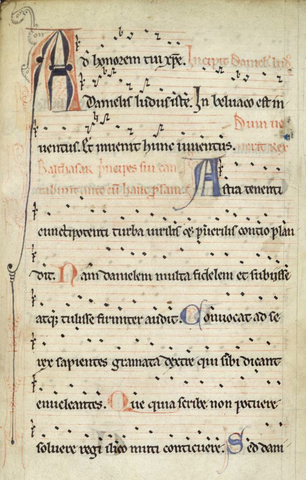 Ad honorem tui xpe. Incipit Danielis ludus
Danielis ludus iste. In beluaco est in
Dum ue
uentus. Et inuenit hunc iuuentus. 
Balthasar Principes sui can
tabunt ante eum hanc prosam. Astra tenenti
cunctipotenti turba uirilis et puerilis contio plau
dit. Nam danielem multa fidelem et subiisse
atque tulisse firmiter audit. Conuocat ad se
rex sapientes gramata dextre qui sibi dicant
enucleantes. Que quia scribe non potuere
soluere regi ilico muti conticuere. Sed dani